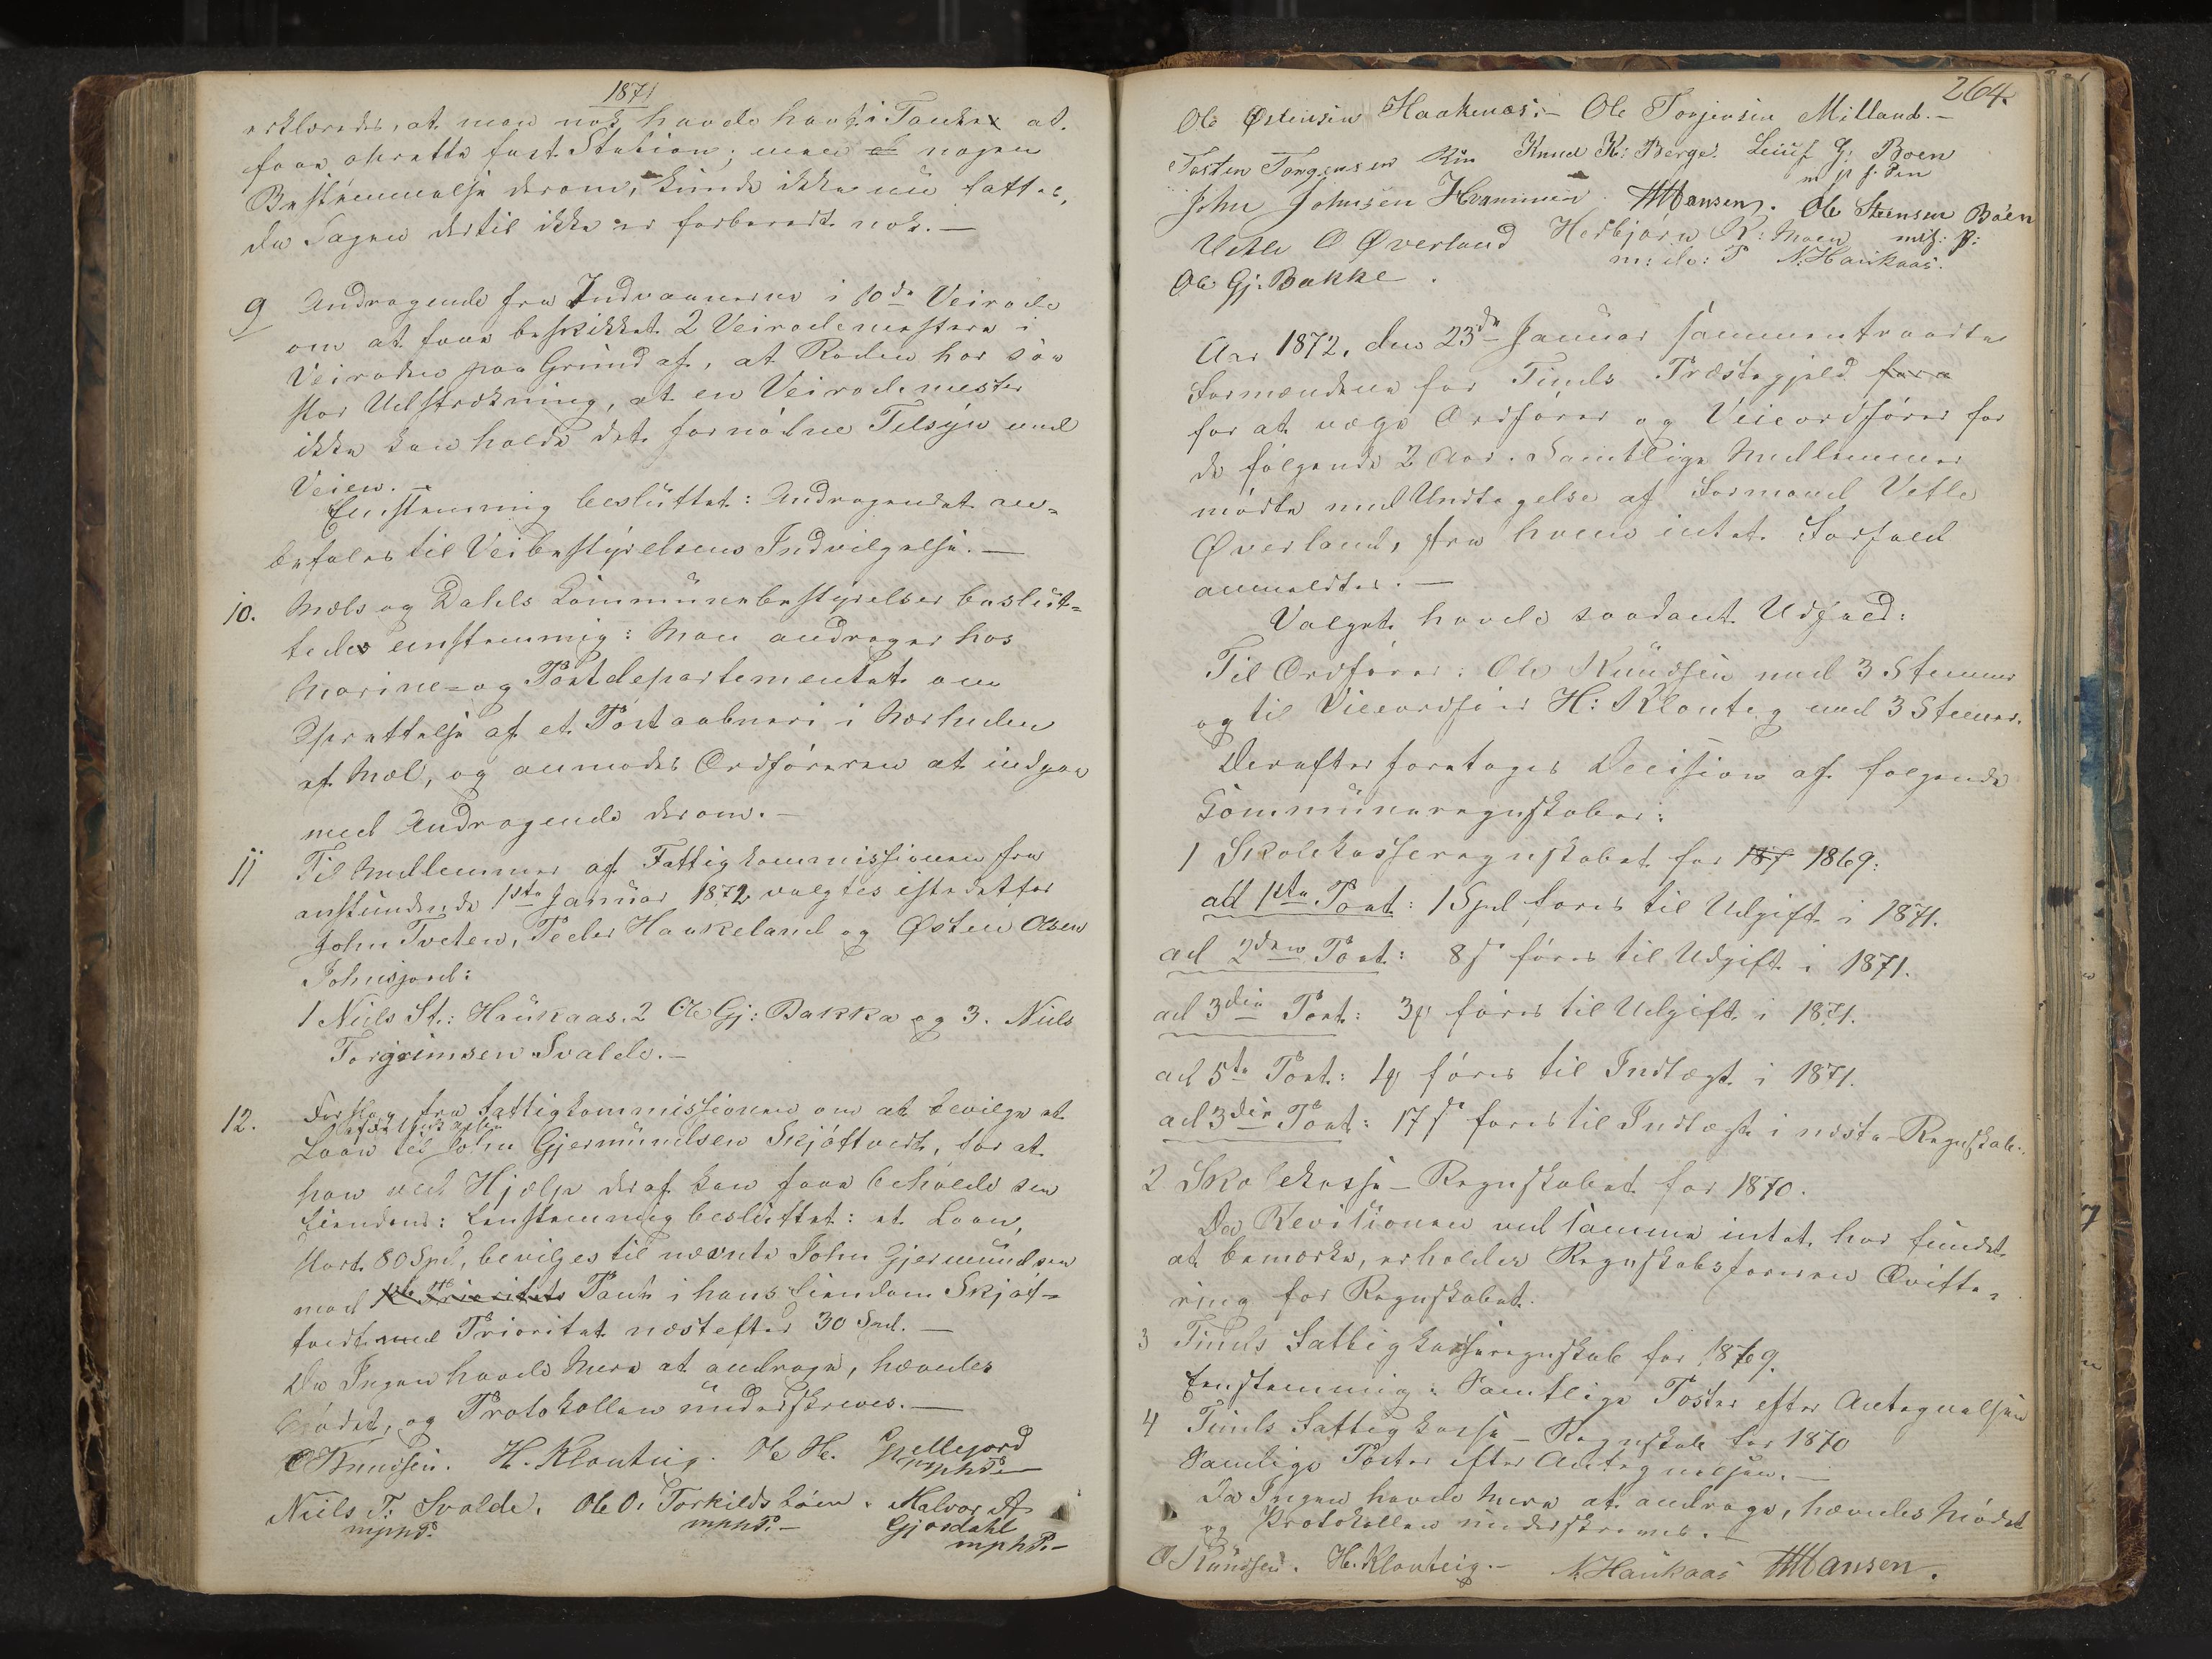 1871
erklæredes, at man nok havde havt i Tanken at
faae oprette fast Station; men nogen
Bestemmelse derom, kunde ikke nu fattes,
da Sagen dertil ikke er forberedt nok. —
9 Andragende fra Indvaanerne i 10de Veirode
om at faae beskikket 2 Veirodemestere i
Veiroden paa Grund af, at Roden har saa
stor Udstrækning, at en Veirodemester
ikke kan holde det fornødne Tilsyn med
Veien. —
Eenstemmig besluttet: Andragendet an=
befales til Veibestyrelsens Indvilgelse. —
10. Mæls og Dahls Kommunebestyrelser beslut=
tede eenstemmig: Man andrager hos
Marine- og Postdepartementet om
Oprettelse af et Postaabneri i Nærheden
af Mæl, og anmodes Ordføreren at indgaa
med Andragende derom. —
11 Til Medlemmer af Fattigkommissionen fra
anstundende 1ste Januar 1872 valgtes istedetfor
John Tveten, Peder Haakeland og Østen Olsen
Johnsjord:
1 Niels St: Haukaas. 2 Ole Gj: Bakka og 3. Niels
Torgrimsen Svalde. —
12. Forslag fra Fattigkommissionen om at bevilge et
Laan til John Gjermundsen Skjøftvedt, for at
han ved Hjælp deraf kan faae beholde sin
Eiendom: Eenstemmig besluttet: et Laan,
stort 80 Spd, bevilges til nævnte John Gjermundsen
mod 1ste Prioritets Pant i hans Eiendom Skjøf=
tvedt med Prioritet næstefter 30 Spd. —
Da Ingen havde Mere at andrage, hævedes
Mødet, og Protokollen underskreves. —
O Knudsen. H. Klouteig. Ole He. Gjellejord
mphP. —
Niels T: Svalde. Ole O: Torkildsböen. Halvor A
mphP. mphP. — Gjøsdahl
mphP. —
264.
Ole Østensen Haakenæs. — Ole Torjersen Milland. —
Tosten Torgersen Knud K: Berge. Leiuf G: Boen
m p f: Pen
John Johnsen Hvammen. HHansen. Ole Steensen Böen
Vetle O Øverland Herbjørn R: Moen mif: P:
m: ilo: P N: Haukaas.
Ole Gj: Bakke.
Aar 1872, den 23de Januar sammentraadte
Formændene for Tinds Præstegjeld fore
for at vælge Ordfører og Viceordfører for
de følgende 2 Aar. Samtlige Medlemmer
mødte med Undtagelse af Formand Vetle
Øverland, fra hvem intet Forfald
anmeldtes. —
Valget havde saadant Udfald:
Til Ordfører: Ole Knudsen med 3 Stemmer
og til Viceordfører H: Klouteig med 3 Stemmer.
Derefter foretoges Decision af følgende
Kommuneregnskaber:
1 Skolekasseregnskabet for 187 1869:
ad 1ste Post: 1 Spd føres til Udgift i 1871.
ad 2den Post: 8 s føres til Udgift i 1871.
ad 3die Post: 3 føres til Udgift i 1871.
ad 5te Post: 1 føres til Indtægt i 1871.
ad 3die Post: 17 s føres til Indtægt i næste Regnskab.
2 Skolekasse-Regnskabet for 1870.
Da Revisionen ved samme intet har fundet
at bemærke, erholder Regnskabsføreren Qvitte=
ring for Regnskabet.
3 Tinds Fattigkasseregnskab for 1869.
Eenstemmig: Samtlige Poster efter Antegnelsen
4 Tinds Fattigkasse-Regnskab for 1870
Samtlige Poster efter Antegnelsen. —
Da Ingen havde Mere at andrage, hævedes Mødet
og Protokollen underskreves. —
O Knudsen. H. Klouteig. — N. Haukaas HHansen.